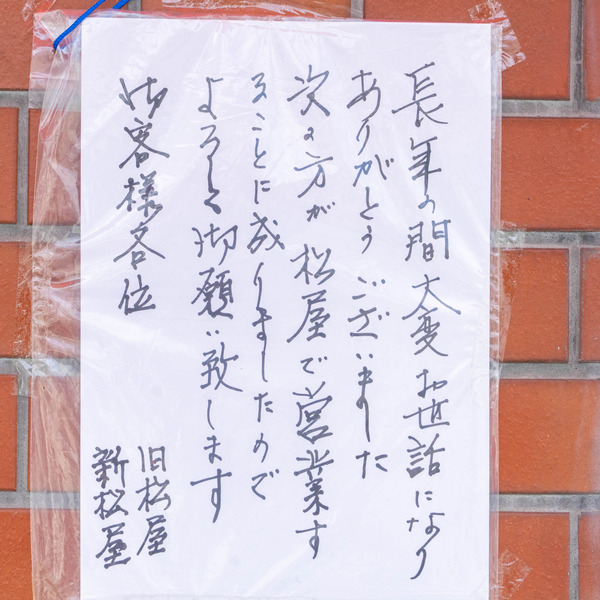 長年の間大変お世話になり
ありがとうございました
次の方が松屋で営業す
ることに成りましたので
よろしく御願い致します
御客様各位
旧松屋
新松屋